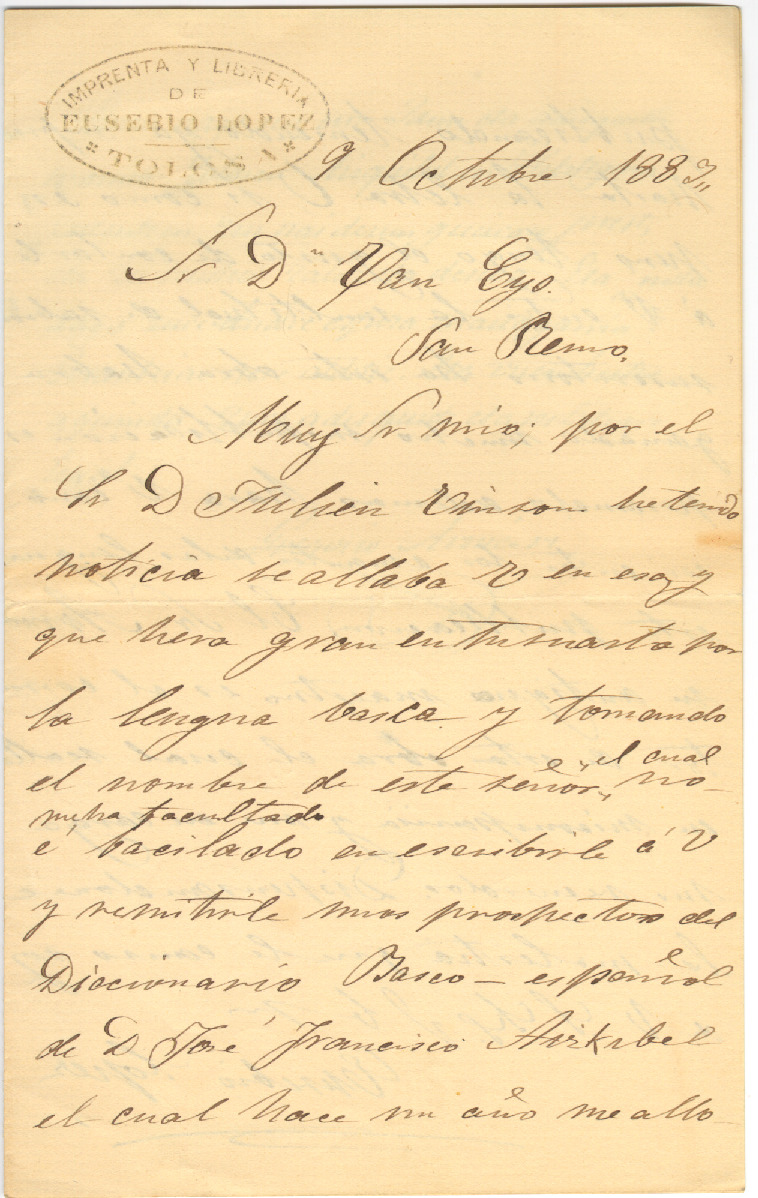 IMPRENTA Y LIBRERIA
DE
EUSEBIO LOPEZ
TOLOSA
9 Octubre 1883,,
Sr Dn Van Eys.
San Remo.
Muy Sr mio; por el
Sr D Julien Vinson he tenido
noticia se allaba V en esa, y
que hera gran entusuasta por
la lengua basca y tomando
el nombre de este señor,, el cual
me ha facultado
no-
é bacilado en escribirle á V
y remitirle unos prospectos del
Diccionario Basco-español
de D José Francisco Aizkibel
el cual hace un año me allo